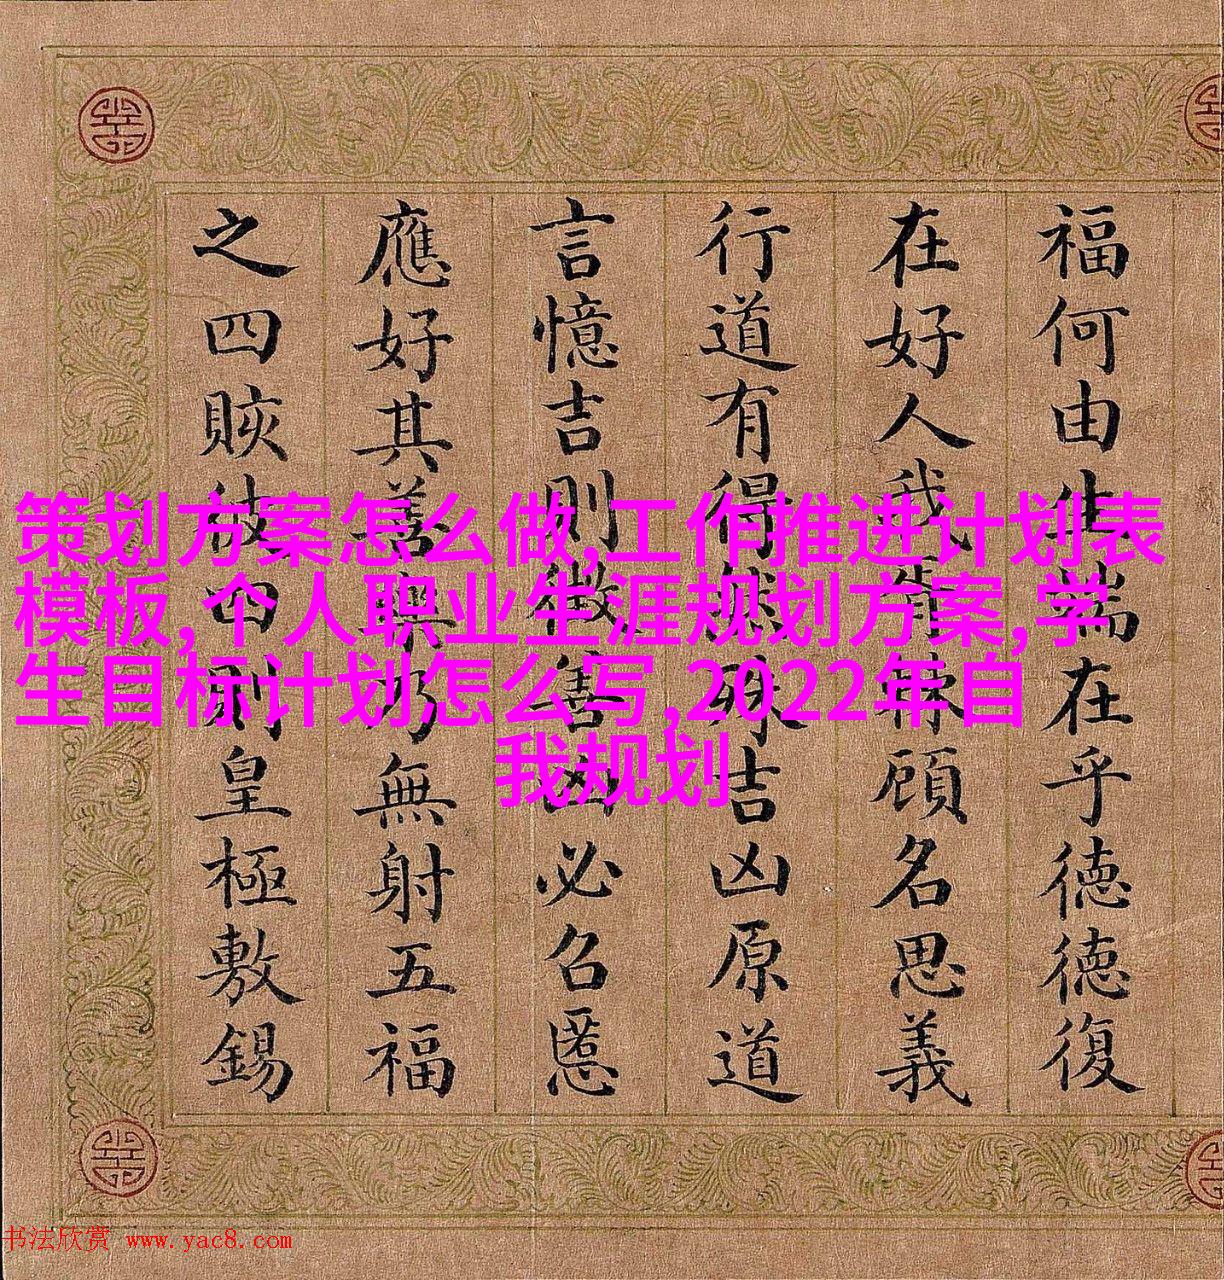 福何由生端在乎德德復
在好人我胥顧名思義
行道有得吉凶原道
言憶吉則徵善凶必召慝
應好其善乃無射五福
之四賅彼四則皇極敷錫
策划方案怎么做,工作推进计划表
模板,个人职业生涯规划方案,学
生目标计划怎么写,2022年自
我规划
书法欣赏 www.yac8.com